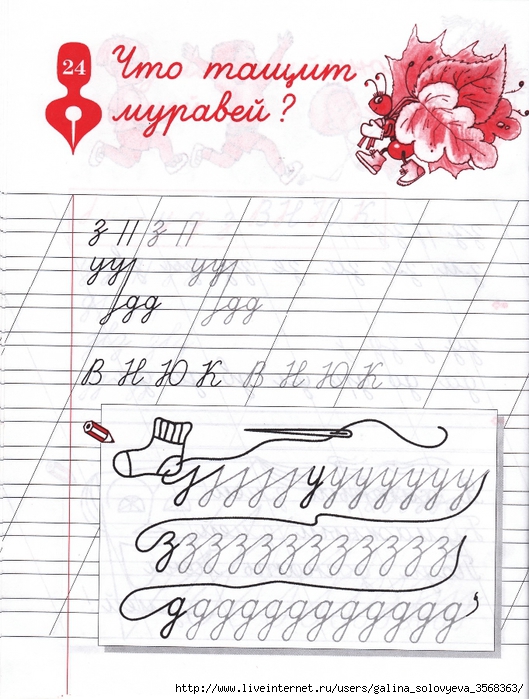 24
Что тащит
муравей?
з // з //
уу уу
gд gд
В Н Ю К В Н Ю К
у
з з з з з з з з з з з з
д д д д д д д д д д д д
http://www.liveinternet.ru/users/galina_solovyeva_3568363/